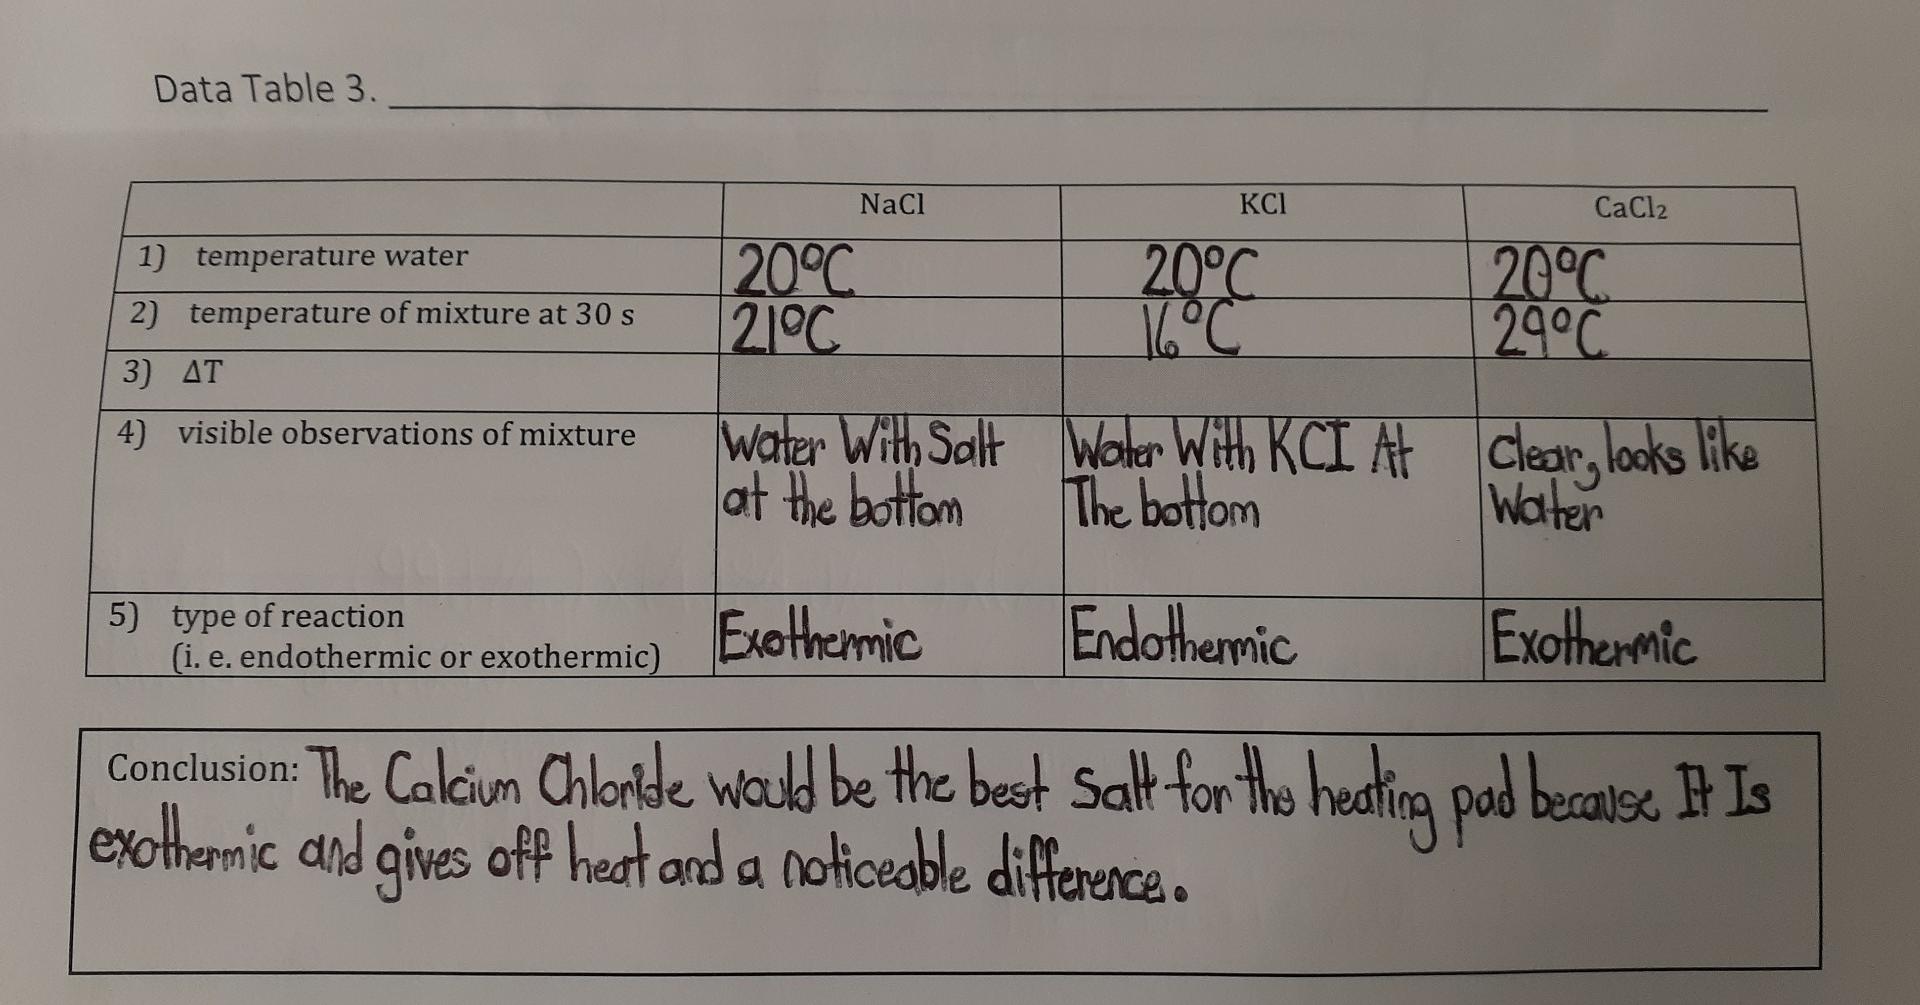 Data Table 3.
NaCl KCl CaCl₂
1) temperature water 20°C 20°C 20°C
2) temperature of mixture at 30 s 21°C 16°C 29°C
3) ΔT
4) visible observations of mixture Water With Salt Water With KCI At Clear, looks like
at the bottom The bottom Water
5) type of reaction
(i. e. endothermic or exothermic) Exothermic Endothermic Exothermic
Conclusion: The Calcium Chloride would be the best Salt for the heating pad because It Is
exothermic and gives off heat and a noticeable difference.